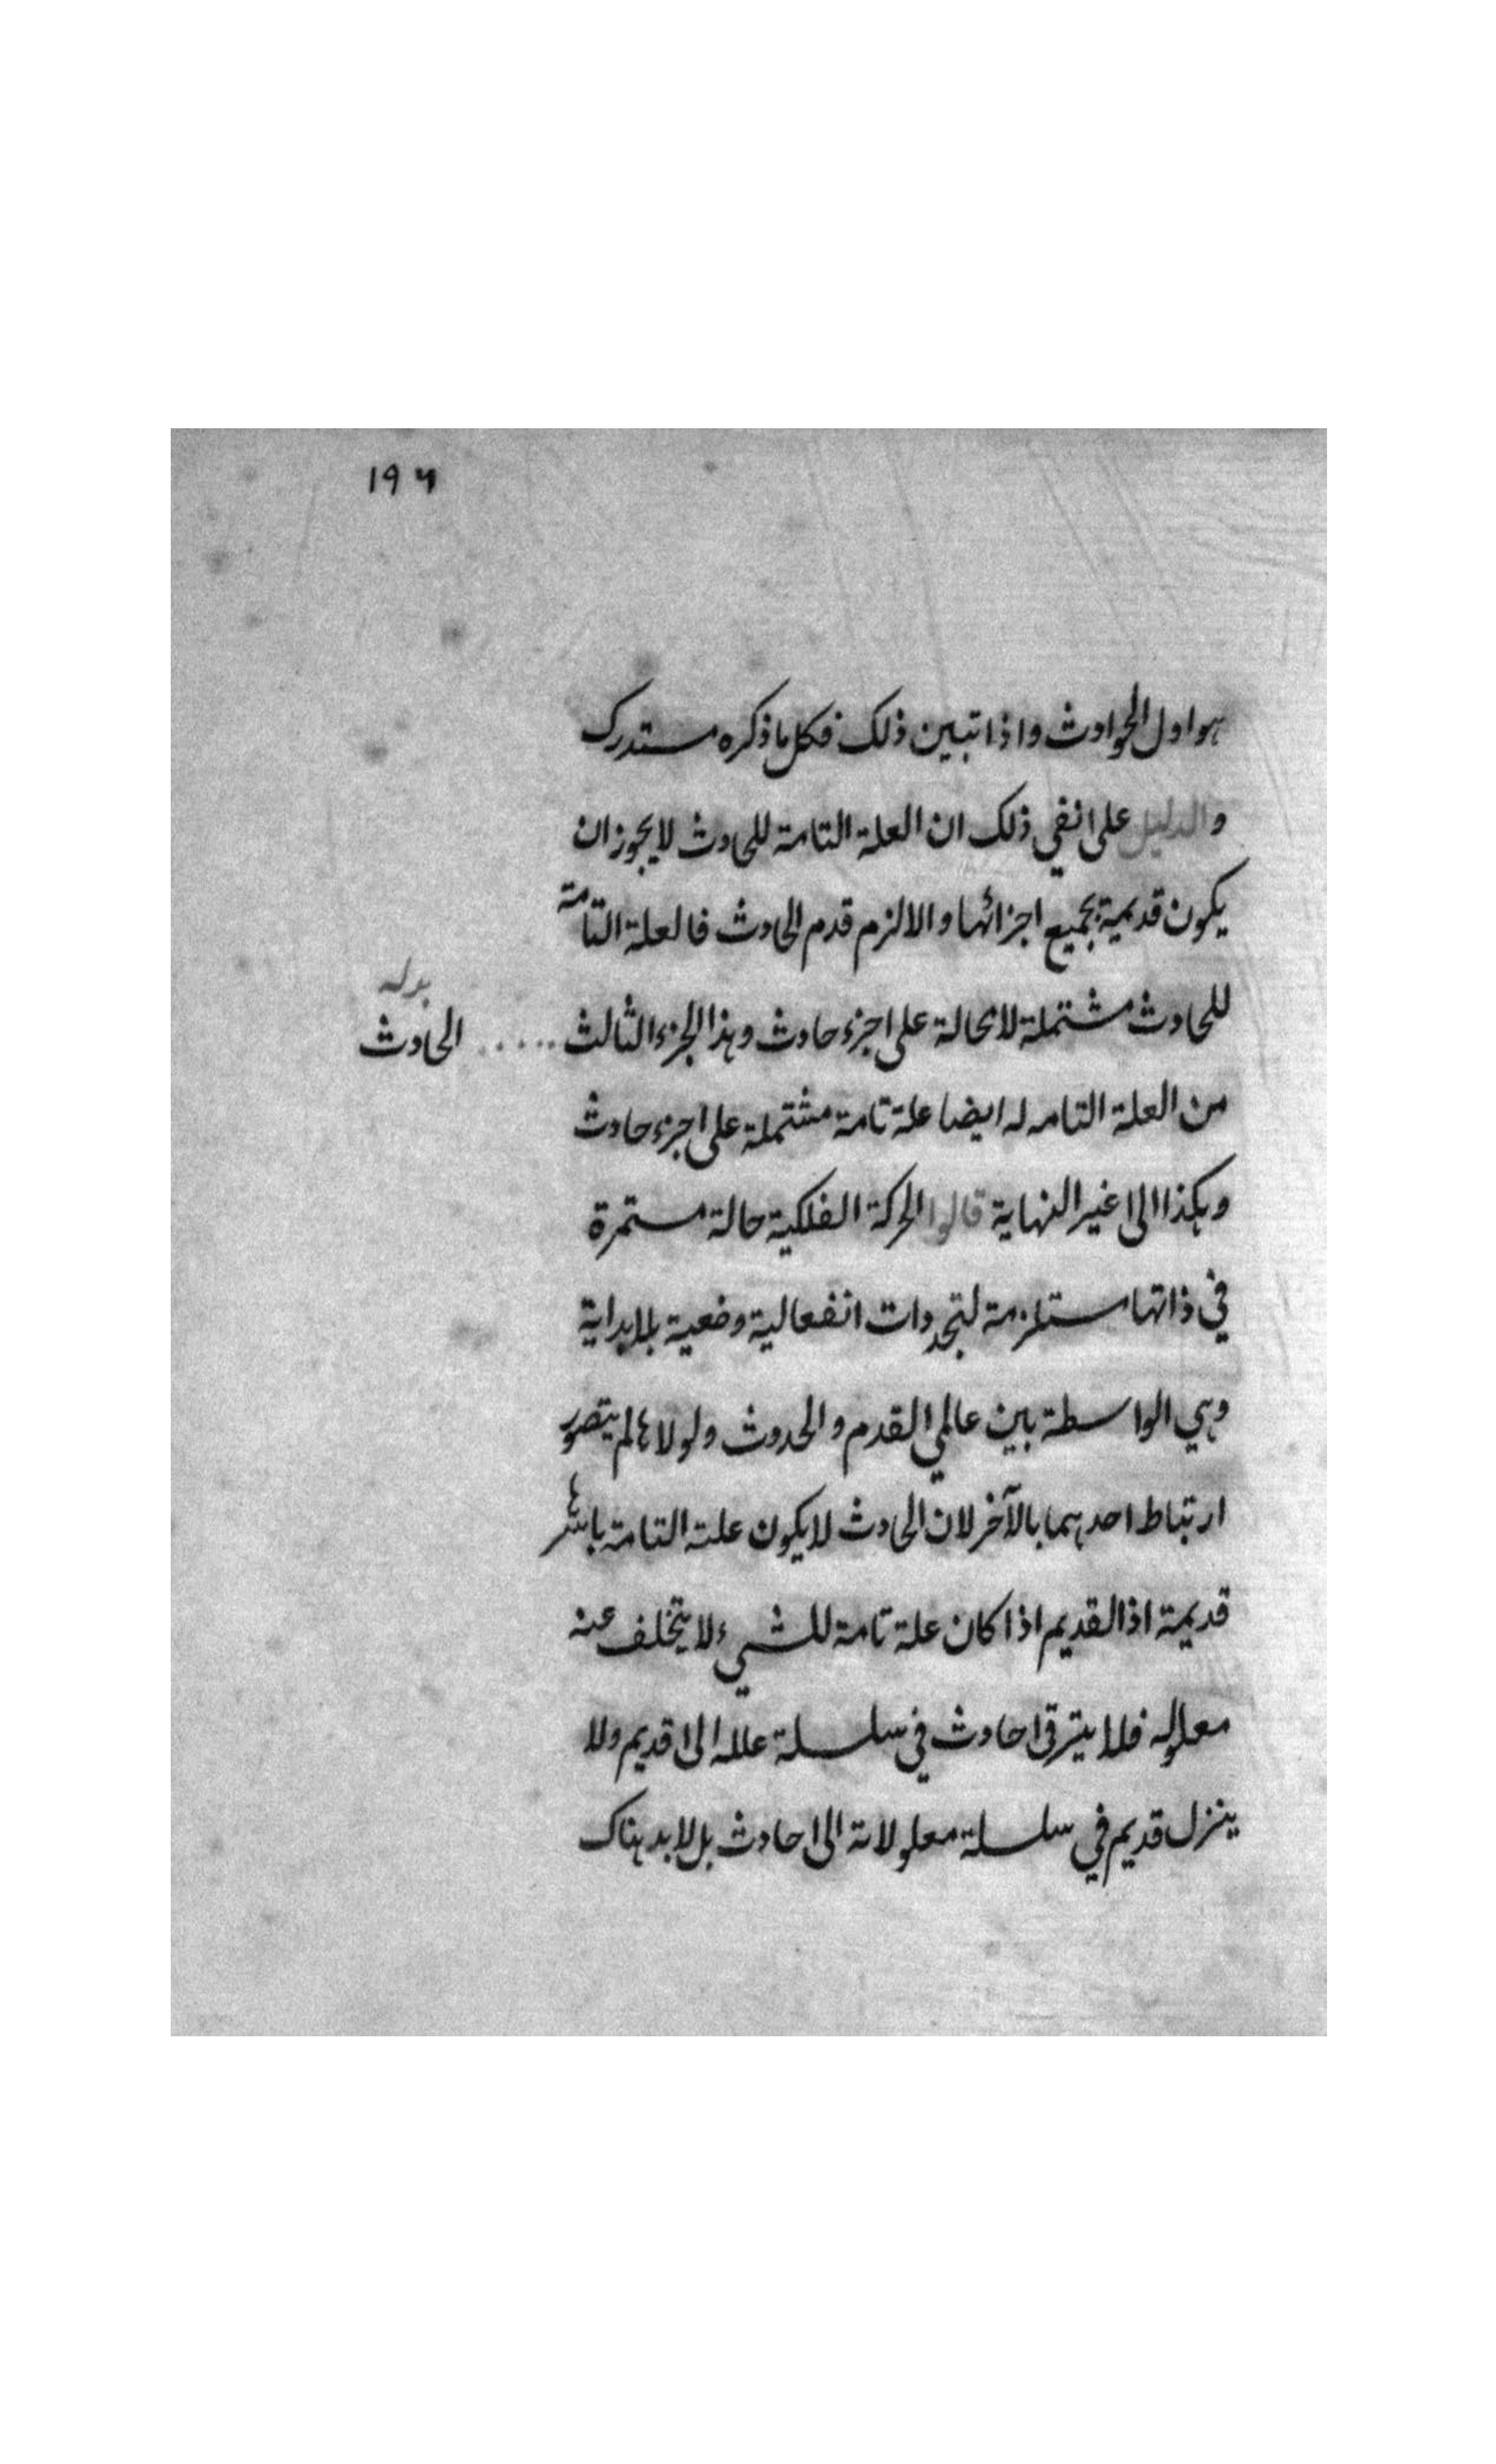 ١٩٦
هو اول الحوادث واذا تبين ذلك فكل ما ذكره مستدرك
والدليل على نفي ذلك ان العلة التامة للحادث لا يجوز ان
يكون قديمية بجميع اجزائها والا لزم قدم الحادث فالعلة التامة
للحادث مشتملة لا محالة على جزء حادث وهذا الجزء الثالث ..... الحادث
بدله
من العلة التامه له ايضا علة تامة مشتملة على جزء حادث
وهكذا الى غير النهاية قالوا الحركة الفلكية حالة مستمرة
في ذاتها مستلزمة لتجددات انفعالية وضعية بلا بداية
وهي الواسطة بين عالمي القدم والحدوث ولولاها لم يتصور
ارتباط احدهما بالآخر لان الحادث لا يكون علته التامة باسرها
قديمة اذ القديم اذا كان علة تامة للشيء لا يتخلف عنه
معلوله فلا يترقى حادث في سلسلة علله الى قديم ولا
ينزل قديم في سلسلة معلولاته الى حادث بل لا بد هناك